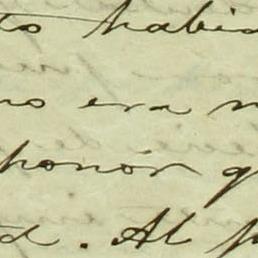 to habia
no era m
honor q
d. Al p